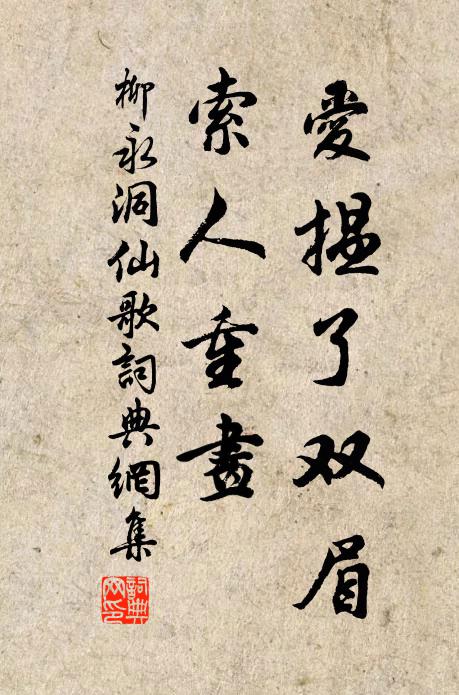 愛揾了双眉
索人重畫
柳永洞仙歌詞典網集
詞典网印